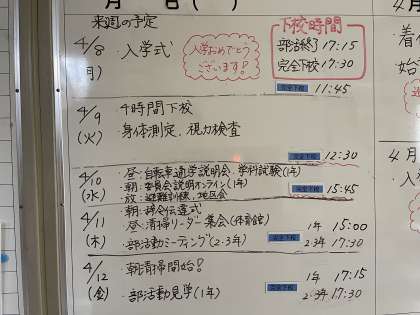 月 日 (
来週の予定
4/8
(月)
・入学式
入学おめでとう
ございます!
下校時間
部活終了 17:15
完全下校 17:30
完全下校 11:45
4/9
(火)
・4時間下校
・身体測定、視力検査
完全下校 12:30
4/10
(水)
・昼:自転車通学説明会、学科試験(1年)
・朝:委員会説明オンライン(1年)
・放:避難訓練、地区会
完全下校 15:45
4/11
(木)
・朝:辞令伝達式
・昼:清掃リーダー集会(体育館)
・部活動ミーティング(2.3年)
完全下校
1年 15:00
2.3年 17:30
4/12
(金)
・朝清掃開始!
・部活動見学(1年)
完全下校
1年 17:15
2.3年 17:30
4月
4月
入